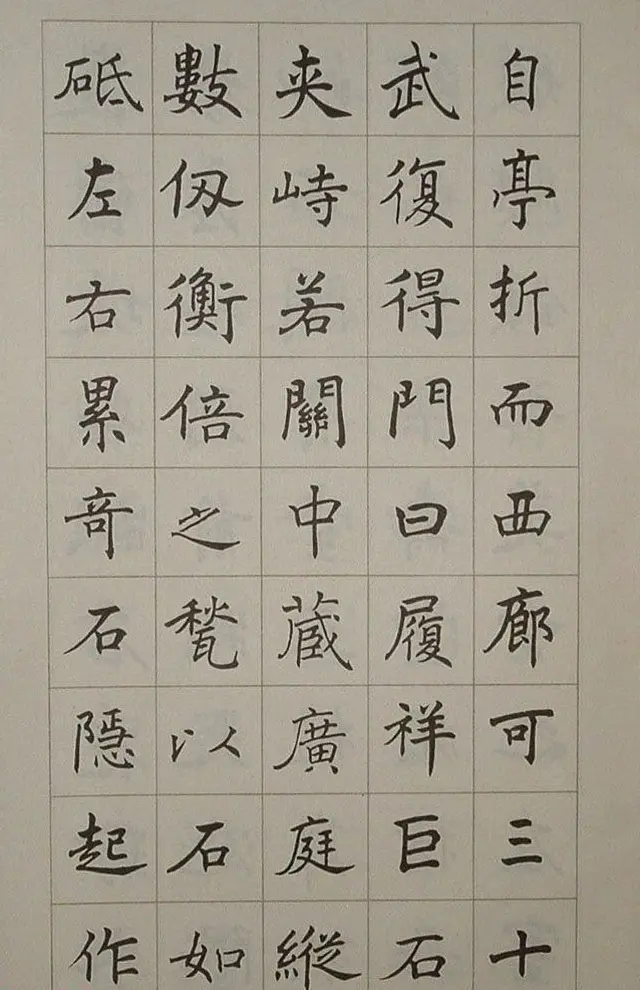 自亭折而西廊可三十
武復得門曰履祥巨石
夾峙若關中蔵廣庭縱
數仭衡倍之甃以石如
砥左右累竒石隱起作